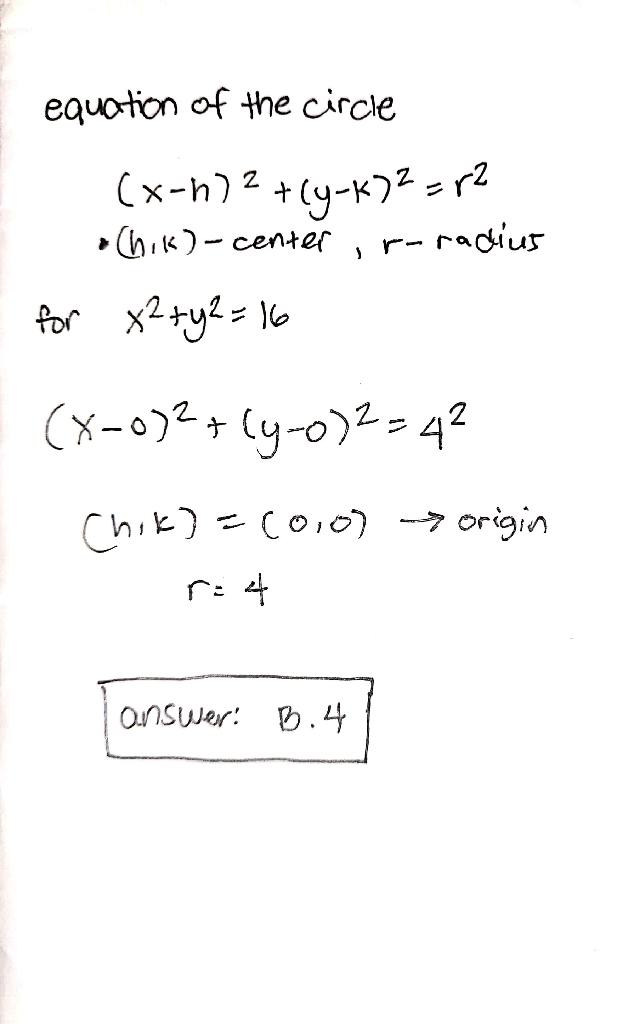 equation of the circle
(x-h)² + (y-k)² = r²
• (h,k) - center , r - radius
for x² + y² = 16
(x-0)² + (y-0)² = 4²
(h,k) = (0,0) → origin
r = 4
answer: B. 4